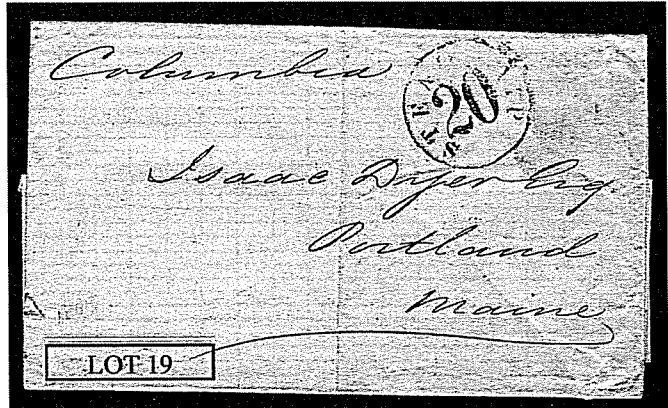 Columbia
STEAMSHIP
20
Isaac Dyer Esq
Portland
Maine
LOT 19